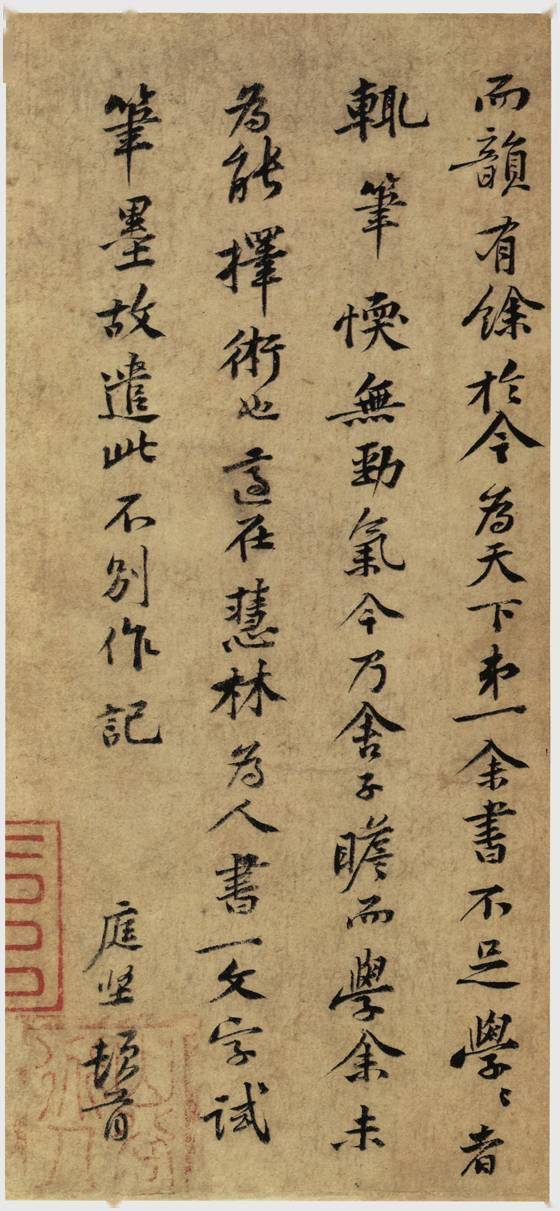 而韻有餘於今為天下弟一余書不足學學者
輒筆愞無勁氣今乃舍子瞻而學余未
為能擇術也適在慧林為人書一文字試
筆墨故遣此不別作記
庭坚頓首